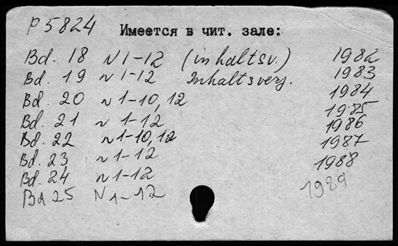 P5824
Имеется в чит. зале:
Bd. 18 N 1-12 (inhaltsv.) 1982
Bd. 19 N 1-12 Inhaltsverz. 1983
Bd. 20 N 1-10, 12 1984
Bd. 21 N 1-12 1985
Bd. 22 N 1-10, 12 1986
Bd. 23 N 1-12 1987
Bd. 24 N 1-12 1988
Bd 25 N 1-12 1989